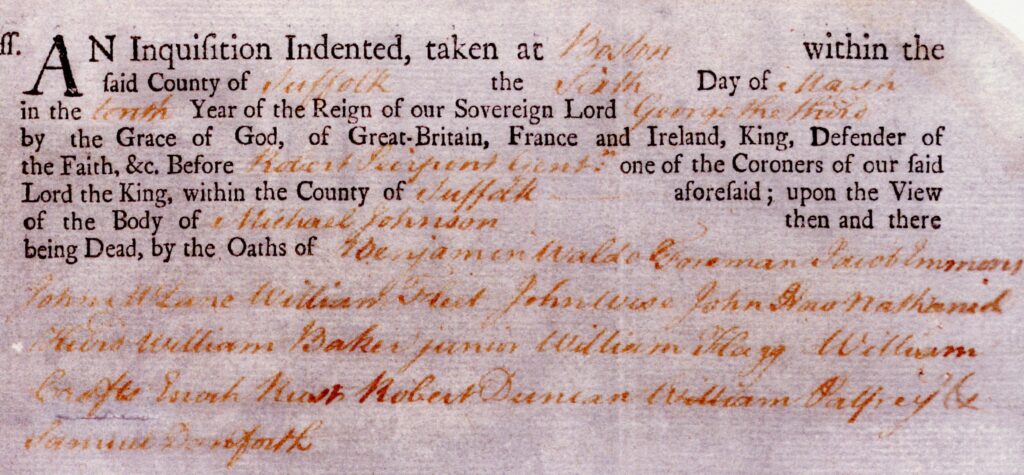 ſſ. AN Inquiſition Indented, taken at Boston within the
ſaid County of Suffolk the Sixth Day of March
in the tenth Year of the Reign of our Sovereign Lord George the third
by the Grace of God, of Great-Britain, France and Ireland, King, Defender of
the Faith, &c. Before Robert Pierpont Gent.ⁿ one of the Coroners of our ſaid
Lord the King, within the County of Suffolk aforeſaid; upon the View
of the Body of Michael Johnson then and there
being Dead, by the Oaths of Benjamin Waldo Foreman Jacob Emmons
John McLane William Fleet John Wise John How Nathaniel
Hurd William Baker junior William Flagg William
Crafts Enoch Rust Robert Duncan William Palfrey &
Samuel Danforth